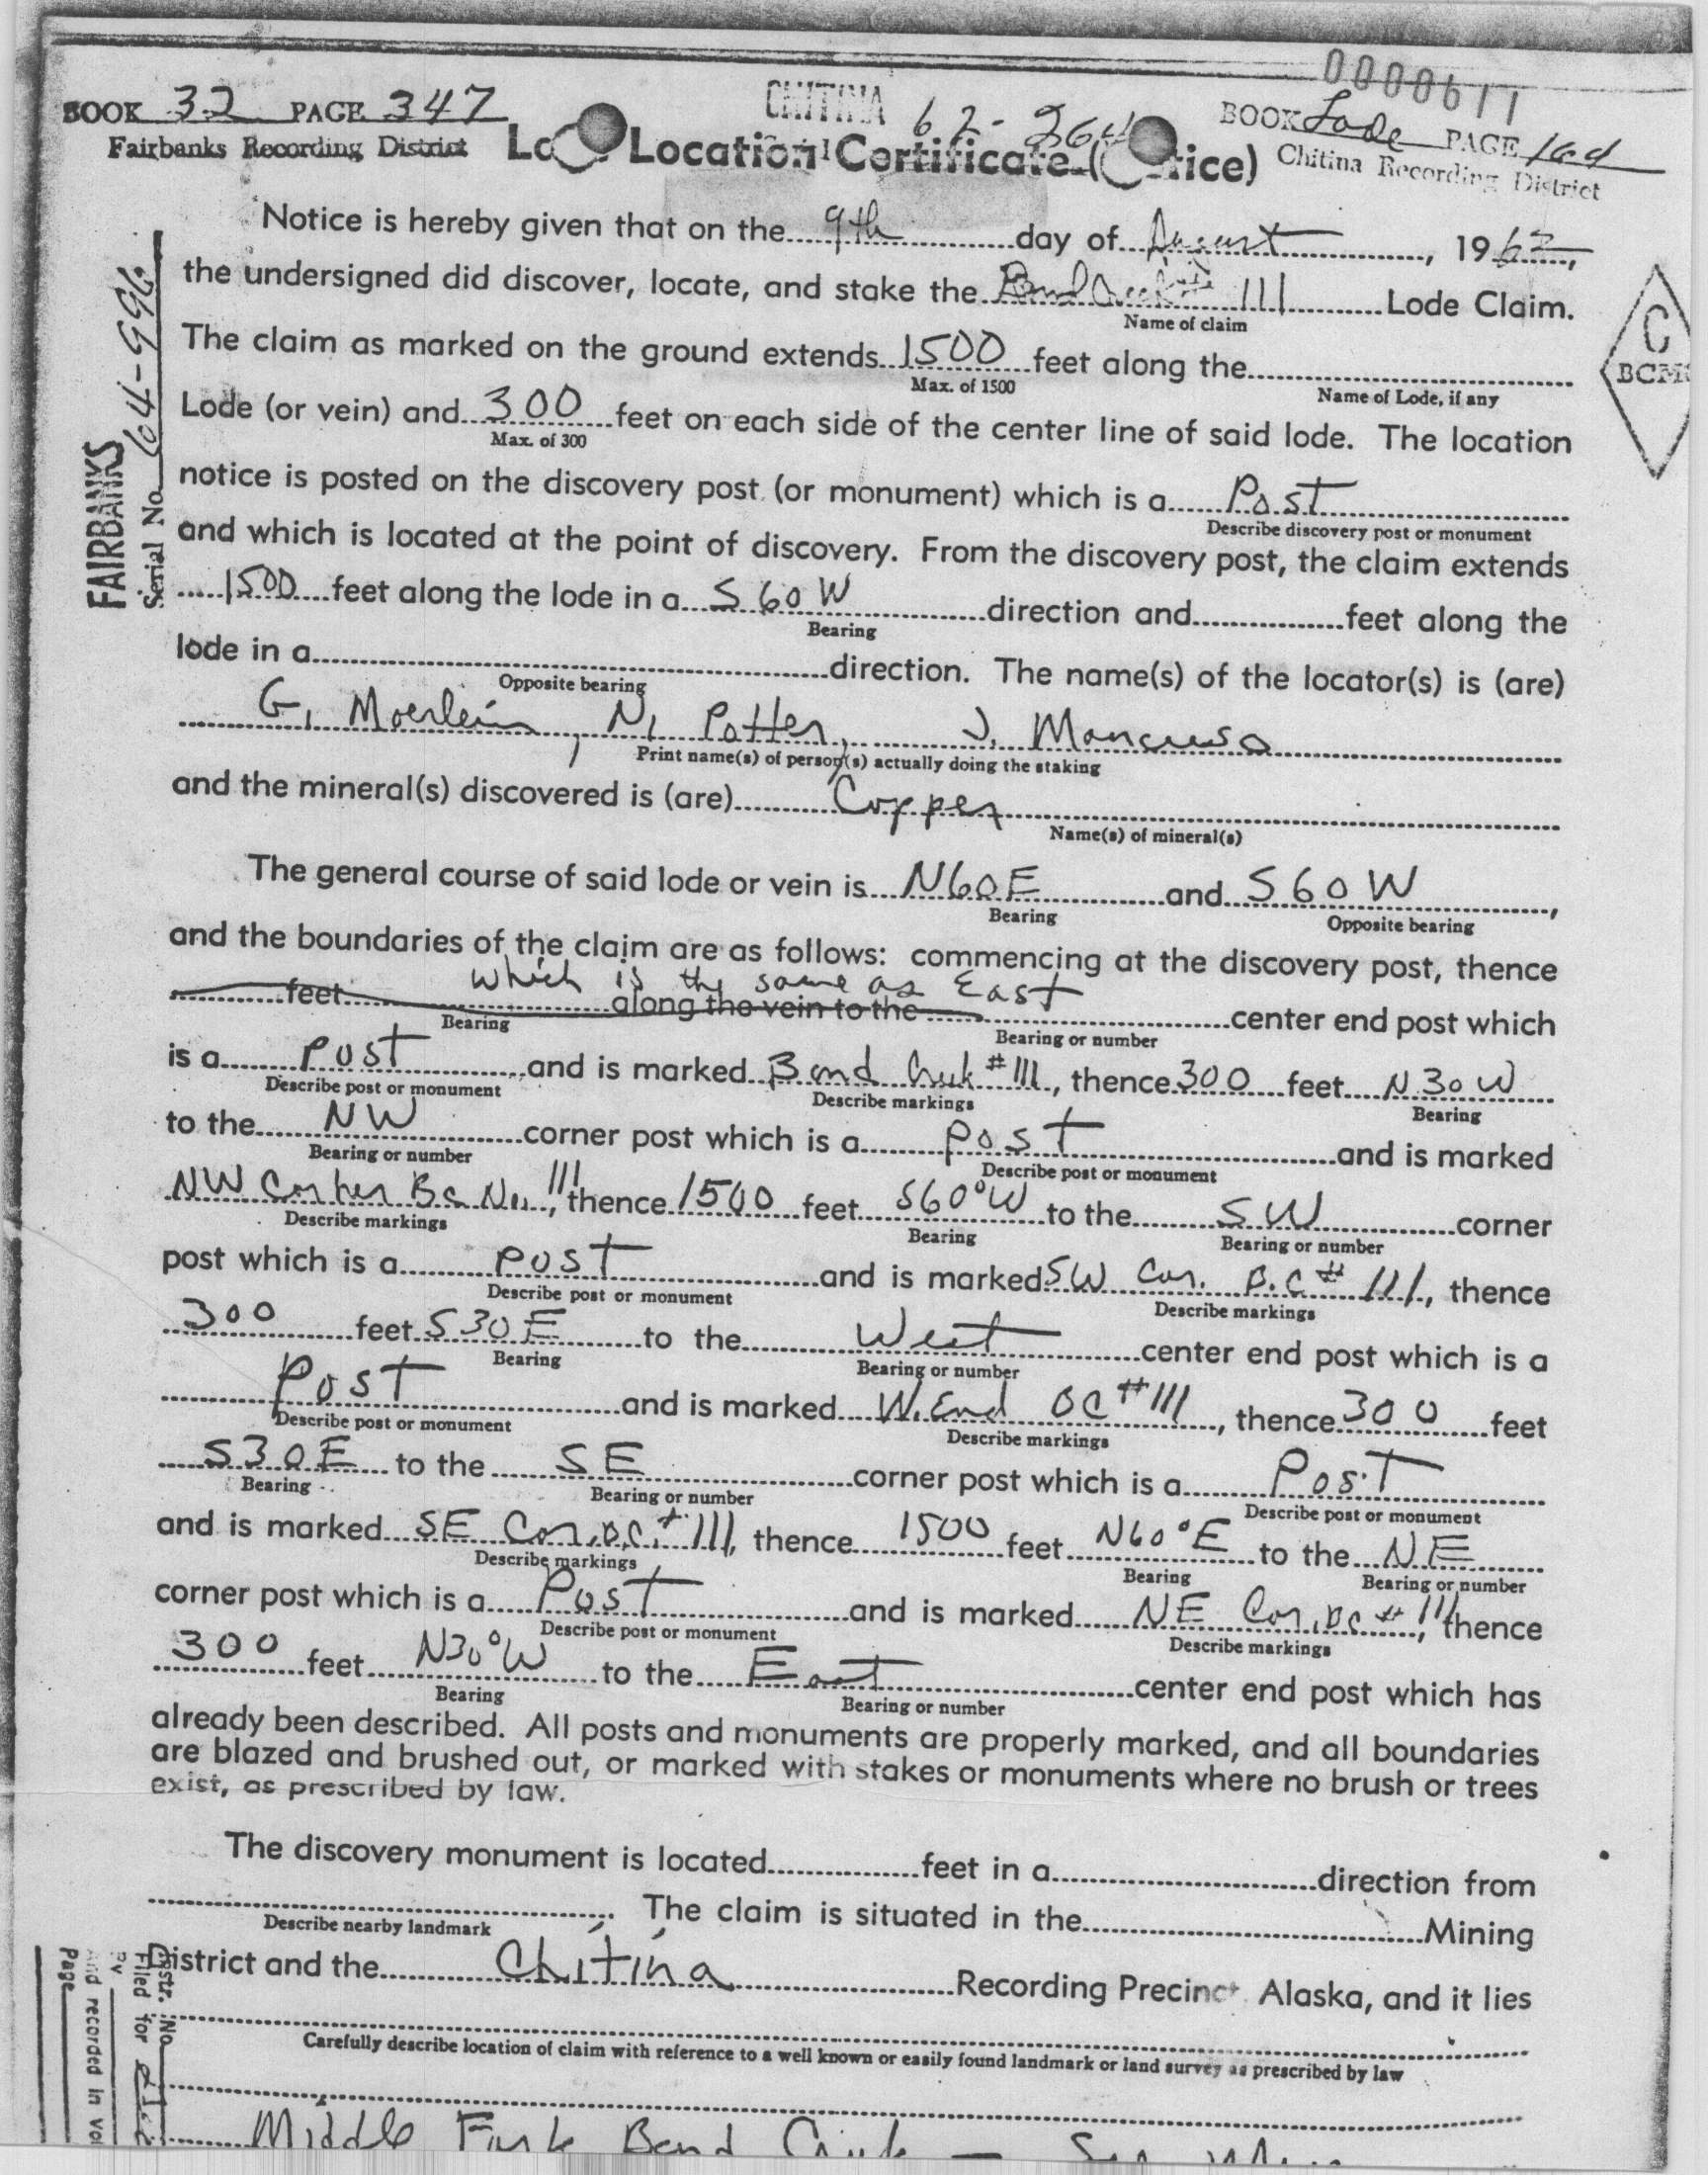 0000611
BOOK 32 PAGE 347 CHITINA 62- BOOK Lode PAGE
Fairbanks Recording District Location Certificate (ice) Chitina Recording District
Notice is hereby given that on the 9th day of August, 1962,
the undersigned did discover, locate, and stake the Bond Creek # 111 Lode Claim.
Name of claim
The claim as marked on the ground extends 1500 feet along the
Max. of 1500 Name of Lode, if any
Lode (or vein) and 300 feet on each side of the center line of said lode. The location
Max. of 300
notice is posted on the discovery post (or monument) which is a Post
Describe discovery post or monument
and which is located at the point of discovery. From the discovery post, the claim extends
1500 feet along the lode in a S 60 W direction and feet along the
Bearing
lode in a direction. The name(s) of the locator(s) is (are)
Opposite bearing
G. Moerlein, N. Potter, J. Mancuso
Print name(s) of person(s) actually doing the staking
and the mineral(s) discovered is (are) Copper
Name(s) of mineral(s)
The general course of said lode or vein is N60E and S 60 W,
Bearing Opposite bearing
and the boundaries of the claim are as follows: commencing at the discovery post, thence
which is the same as East
feet along the vein to the center end post which
Bearing Bearing or number
is a Post and is marked Bond Creek #111, thence 300 feet N 30 W
Describe post or monument Describe markings Bearing
to the NW corner post which is a Post and is marked
Bearing or number Describe post or monument
NW Corner BC No. 111, thence 1500 feet S60°W to the SW corner
Describe markings Bearing Bearing or number
post which is a Post and is marked SW Cor. B.C # 111, thence
Describe post or monument Describe markings
300 feet S30E to the West center end post which is a
Bearing Bearing or number
Post and is marked W. End BC #111, thence 300 feet
Describe post or monument Describe markings
S30E to the SE corner post which is a Post
Bearing Bearing or number Describe post or monument
and is marked SE Cor. B.C. # 111, thence 1500 feet N60°E to the NE
Describe markings Bearing Bearing or number
corner post which is a Post and is marked NE Cor. BC # 111, thence
Describe post or monument Describe markings
300 feet N30°W to the East center end post which has
Bearing Bearing or number
already been described. All posts and monuments are properly marked, and all boundaries
are blazed and brushed out, or marked with stakes or monuments where no brush or trees
exist, as prescribed by law.
The discovery monument is located feet in a direction from
. The claim is situated in the Mining
Describe nearby landmark
District and the Chitina Recording Precinct Alaska, and it lies
Carefully describe location of claim with reference to a well known or easily found landmark or land survey as prescribed by law
Middle Fork Bond Creek —
FAIRBANKS
Serial No. 64-996
C
BCM
Instr. No.
Filed for
By
and recorded in Vol
Page